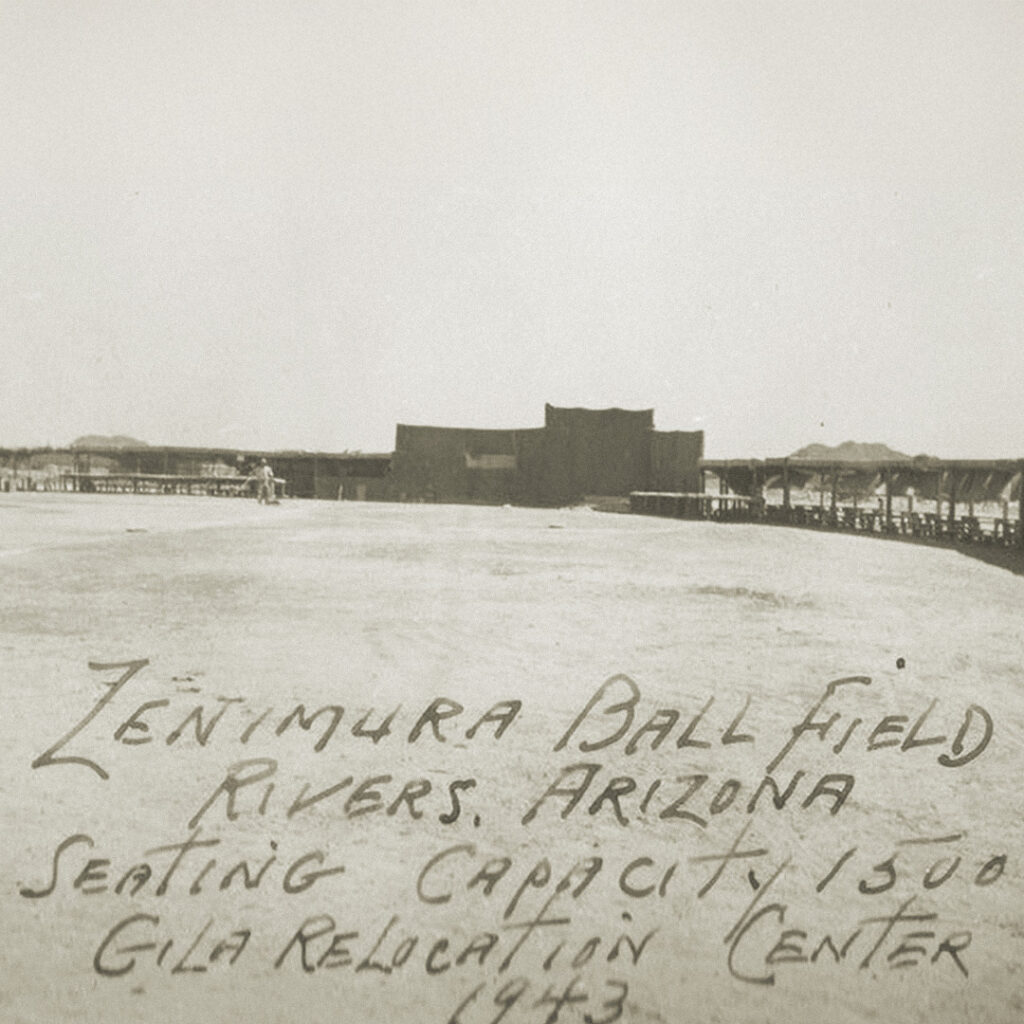 ZENIMURA BALL FIELD
RIVERS, ARIZONA
SEATING CAPACITY 1500
GILA RELOCATION CENTER
1943